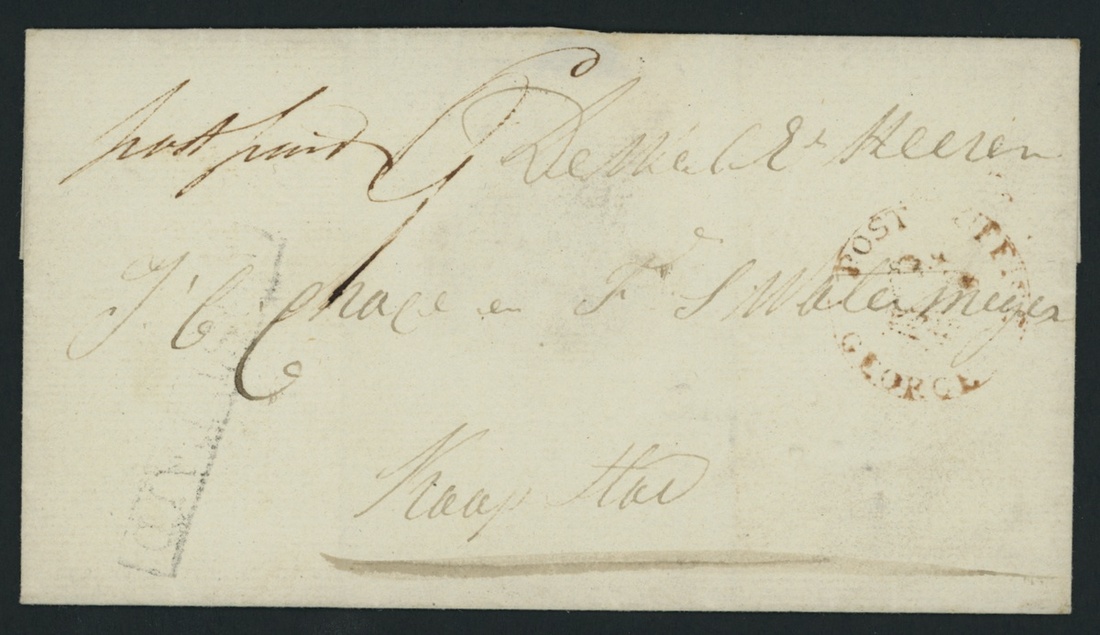 post paid De Wel Ed Heeren
J C Chace en F S Watermeyer
Kaap Stad
POST OFFICE
GEORGE